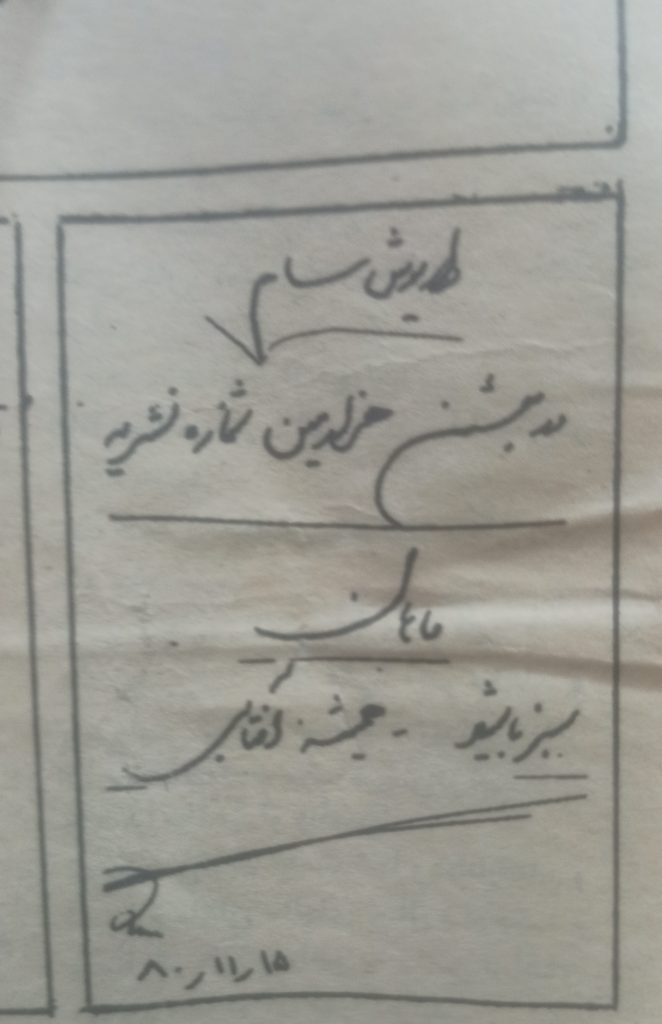 داریوش سام
در جشن هزارمین شماره نشریه
ماهان
سبز باشید - همیشه آفتابی
۸۰٫۱۱٫۱۵